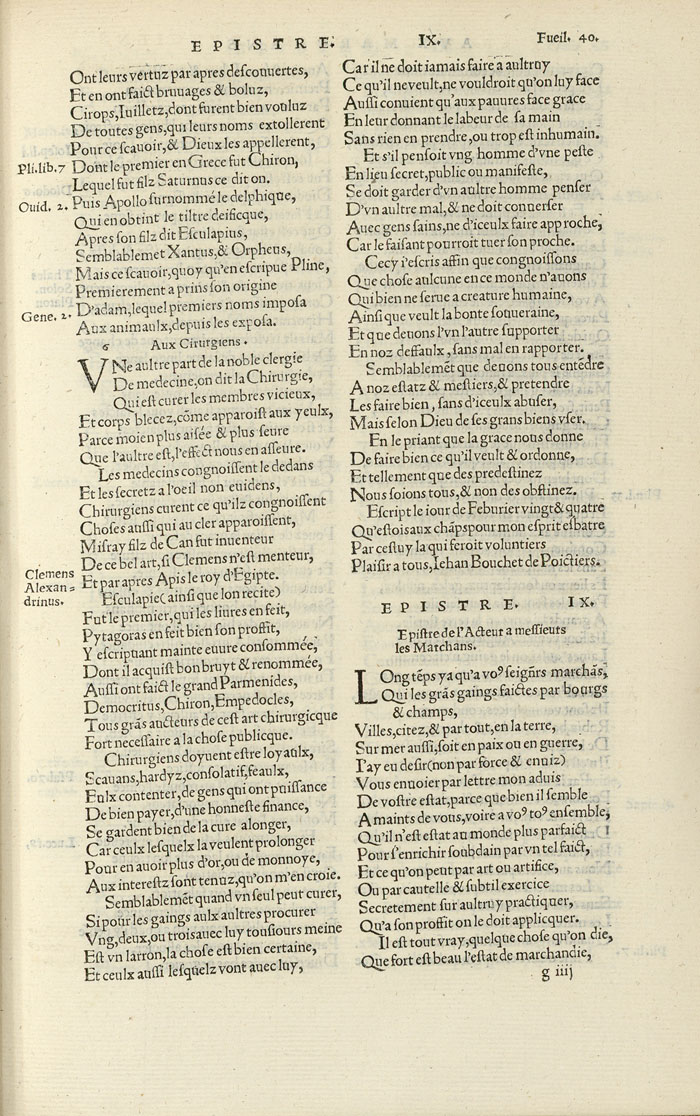 EPISTRE. IX. Fueil. 40.
Ont leurs vertuz par apres descouuertes,
Et en ont faict bruuages & boluz,
Cirops, Iuilletz, dont furent bien vouluz
De toutes gens, qui leurs noms extollerent
Pour ce scauoir, & Dieux les appellerent,
Pli. lib. 7
Dont le premier en Grece fut Chiron,
Lequel fut filz Saturnus ce dit on.
Ouid. 2.
Puis Apollo surnommé le delphique,
Qui en obtint le tiltre deificque,
Apres son filz dit Esculapius,
Semblablemet Xantus, & Orpheus,
Mais ce scauoir, quoy qu'en escripue Pline,
Premierement a prins son origine
Gene. 2.
D'adam, lequel premiers noms imposa
Aux animaulx, depuis les exposa.
6 Aux Cirurgiens.
VNe aultre part de la noble clergie
De medecine, on dit la Chirurgie,
Qui est curer les membres vicieux,
Et corps blecez, cōme apparoist aux yeulx,
Parce moien plus aisée & plus seure
Que l'aultre est, l'effect nous en asseure.
Les medecins congnoissent le dedans
Et les secretz a l'oeil non euidens,
Chirurgiens curent ce qu'ilz congnoissent
Choses aussi qui au cler apparoissent,
Misray filz de Can fut inuenteur
De ce bel art, si Clemens n'est menteur,
Clemens
Alexan=
drinus.
Et par apres Apis le roy d'Egipte.
Esculapie (ainsi que lon recite)
Fut le premier, qui les liures en feit,
Pytagoras en feit bien son proffit,
Y escripuant mainte euure consommée,
Dont il acquist bon bruyt & renommée,
Aussi ont faict le grand Parmenides,
Democritus, Chiron, Empedocles,
Tous grās aucteurs de cest art chirurgicque
Fort necessaire a la chose publicque.
Chirurgiens doyuent estre loyaulx,
Scauans, hardyz, consolatif, feaulx,
Eulx contenter, de gens qui ont puissance
De bien payer, d'une honneste finance,
Se gardent bien de la cure alonger,
Car ceulx lesquelx la veulent prolonger
Pour en auoir plus d'or, ou de monnoye,
Aux interestz sont tenuz, qu'on m'en croie.
Semblablemēt quand vn seul peut curer,
Si pour les gaings aulx aultres procurer
Vng, deux, ou trois auec luy tousiours meine
Est vn larron, la chose est bien certaine,
Et ceulx aussi lesquelz vont auec luy,
Car il ne doit iamais faire a aultruy
Ce qu'il ne veult, ne vouldroit qu'on luy face
Aussi conuient qu'aux pauures face grace
En leur donnant le labeur de sa main
Sans rien en prendre, ou trop est inhumain.
Et s'il pensoit vng homme d'vne peste
En lieu secret, public ou manifeste,
Se doit garder d'vn aultre homme penser
D'vn aultre mal, & ne doit conuerser
Auec gens sains, ne d'iceulx faire approche,
Car le faisant pourroit tuer son proche.
Cecy i'escris affin que congnoissons
Que chose aulcune en ce monde n'auons
Qui bien ne serue a creature humaine,
Ainsi que veult la bonte souueraine,
Et que deuons l'vn l'autre supporter
En noz deffaulx, sans mal en rapporter.
Semblablemēt que deuons tous entēdre
A noz estatz & mestiers, & pretendre
Les faire bien, sans d'iceulx abuser,
Mais selon Dieu de ses grans biens vser.
En le priant que la grace nous donne
De faire bien ce qu'il veult & ordonne,
Et tellement que des predestinez
Nous soions tous, & non des obstinez.
Escript le iour de Feburier vingt & quatre
Qu'estois aux chāps pour mon esprit esbatre
Par cestuy la qui feroit voluntiers
Plaisir a tous, Iehan Bouchet de Poictiers.
EPISTRE. IX.
Epistre de l'Acteur a messieurs
les Marchans.
LOng tēps ya qu'a voꝰ seigñrs marchās,
Qui les grās gaings faictes par bourgs
& champs,
Villes, citez, & par tout, en la terre,
Sur mer aussi, soit en paix ou en guerre,
I'ay eu desir (non par force & enuiz)
Vous enuoier par lettre mon aduis
De vostre estat, parce que bien il semble
A maints de vous, voire a voꝰ toꝰ ensemble,
Qu'il n'est estat au monde plus parfaict
Pour s'enrichir soubdain par vn tel faict,
Et ce qu'on peut par art ou artifice,
Ou par cautelle & subtil exercice
Secretement sur aultruy practiquer,
Qu'a son proffit on le doit applicquer.
Il est tout vray, quelque chose qu'on die,
Que fort est beau l'estat de marchandie,
g iiij